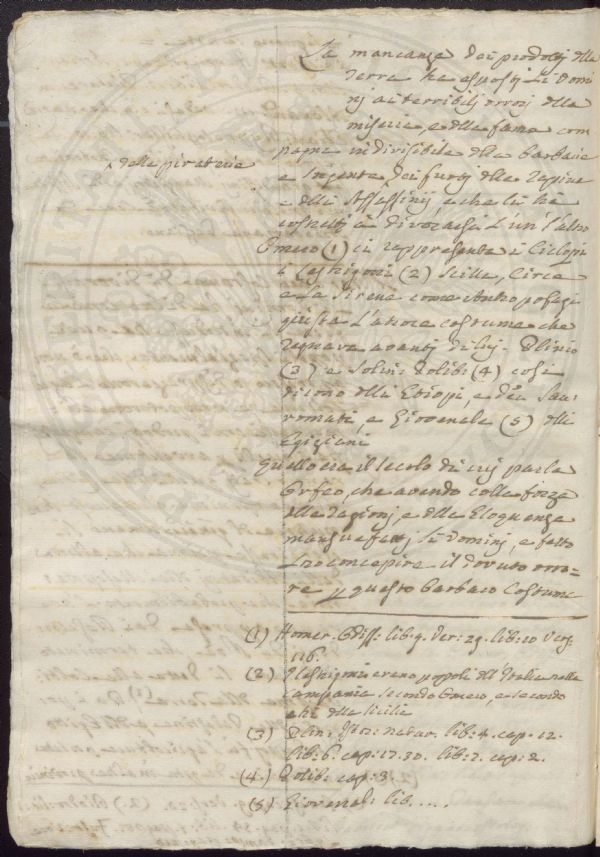 La mancanza dei prodotti della
Terra ha esposti li Uomi
nj ai terribilj orrorj della
miseria, e della fame com
pagna indivisibile della barbarie
x delle piraterie
e sorgente dei furtj delle rapine
e delli Assassinij, e che li ha
costretti a divorarsi l'un l'altro
Omero (1) ci rappresenta i Ciclopi
i Lestrigoni (2) Scilla, Circe
e la Sirene come Antropofagi
giusta l'atroce costume che
regnava avantj di luj. Plinio
(3) e Solin: Polib: (4) cosi
dicono delli Etiopi, e dei Sau:
romati, e Giovenale (5) delli
egiziani
quello era il secolo di cuj parla
Orfeo, che avendo colla forza
delle ragionj, e della Eloquenza
mansuefattj li Uominj, e fatto
Loro concepire il dovuto orro=
re p questo barbaro Costume
(1) Homer. Odiss: lib: 9. ver: 29. lib: 10 vers:
116.
(2) I Lestrigonj erano popoli dell' Italia nella
campania secondo Omero, e secondo
altri della Sicilia
(3) Plin: Istor: natur. lib: 4. cap. 12.
lib: 6. cap: 17. 30. lib: 7. cap: 2.
(4.) Polib: cap: 3.
(5) Giovenal: lib. ....